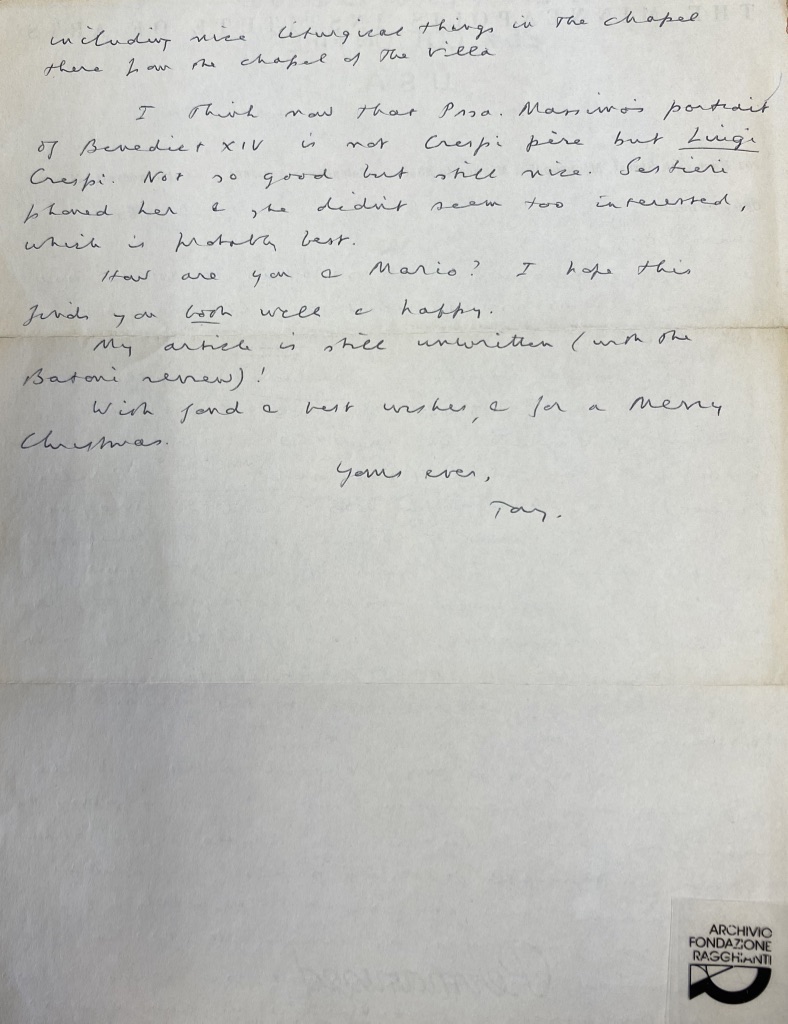 including nice liturgical things in the chapel
there from the chapel of the villa
I think now that Pssa. Massimo's portrait
of Benedict XIV is not Crespi père but Luigi
Crespi. Not so good but still nice. Sestieri
phoned her & she didn't seem too interested,
which is probably best.
How are you & Mario? I hope this
finds you both well & happy.
My article is still unwritten (with the
Batoni review)!
With fond & best wishes, & for a Merry
Christmas.
Yours ever,
Tony.
ARCHIVIO
FONDAZIONE
RAGGHIANTI